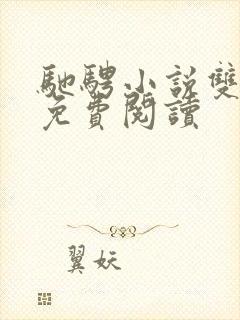 馳騁小說雙
免費閱讀
翼妖